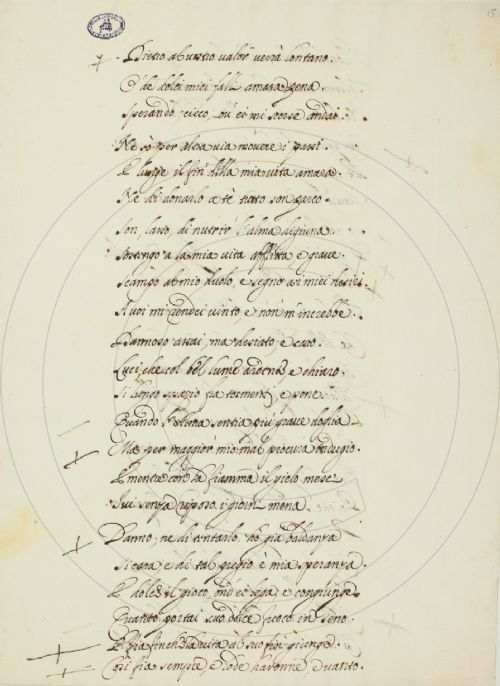 15
Dietro al vostro valor verrà lontano.
O' de dolci miei falli amara pena.
Sperando, cieco, ov' ei mi scorse andai.
Ne sò per altra via movere i passi.
E lunge il fin della mia vita amara.
Ne di donarlo a tè tutto son parco.
Son, lasso, di nutrir' l'alma digiuna.
Sostengo a la mia vita afflitta e grave.
Scampo al mio duolo, e segno ai miei desiri.
A voi mi rendei vinto, e non m'increbbe.
Dannoso assai, ma desiato, e caro.
Luci, che col bel lume ardente, e chiaro.
Si lungo spazio fra tormenti, e pene.
Quando l'alma sentia più grave doglia.
Ma per maggior' mio mal procura indugio.
E mentre la fiamma il gielo mesce
Ivi senza riposo i giorni mena.
Danno, ne di tentarlo ho già baldanza
Si cara e di tal pregio è mia speranza.
E dolce il gioco, ond' ei lega, e congiunge.
Quanto portai suo dolce foco in seno.
E fia finch' la vita al suo fin giunge.
Così fia sempre, e lode havronne